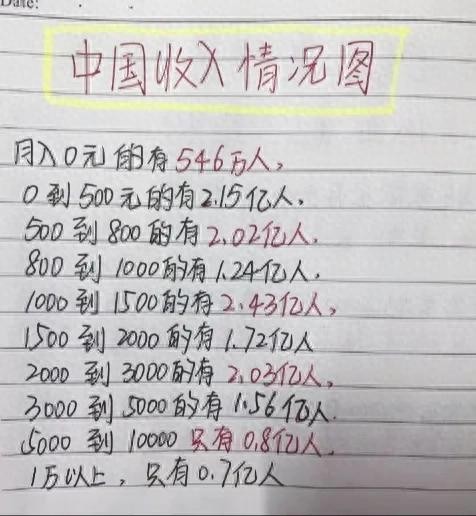 Date:
中国收入情况图
月入0元的有546万人,
0到500元的有2.15亿人,
500到800的有2.02亿人,
800到1000的有1.24亿人,
1000到1500的有2.43亿人,
1500到2000的有1.72亿人
2000到3000的有2.03亿人,
3000到5000的有1.56亿人.
5000到10000只有0.8亿人,
1万以上,只有0.7亿人